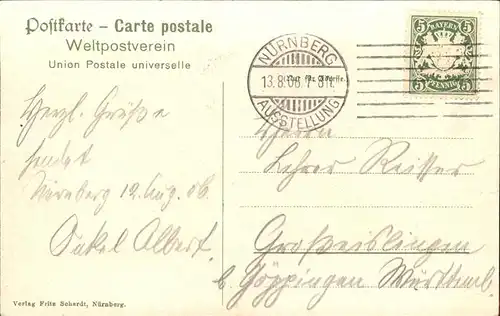 Postkarte – Carte postale
Weltpostverein
Union Postale universelle
NÜRNBERG
13.8.06.
AUSSTELLUNG
BAYERN
5 5
5 PFENNIG 5
Herzl. Grüße
sendet
Nürnberg 12 Aug. 06.
Onkel Albert.
Herrn
Lehrer Reisser
Großeislingen
b. Göppingen Württemb.
Verlag Fritz Schardt, Nürnberg.